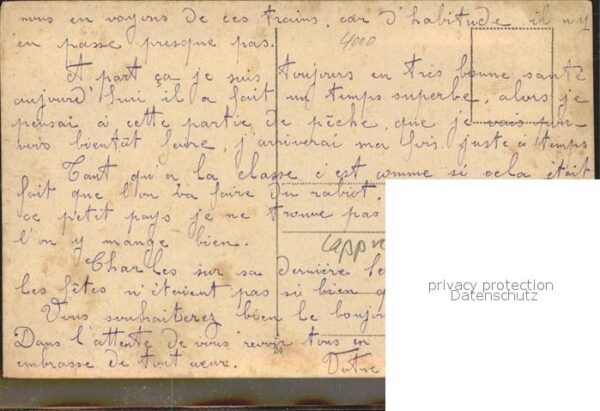 nous en voyons de ces trains, car d'habitude il n'y
en passe presque pas.
4000
A part ça je suis toujours en très bonne santé
aujourd'hui il a fait un temps superbe, alors je
pensai à cette partie de pêche, que je vais pou-
voir bientôt faire, j'arriverai ma fois juste à temps
Tant qu'à la classe c'est comme si cela était
fait que l'on va faire du rabiot.
ce petit pays je ne trouve pas
l'on y mange bien.
Charles sur sa dernière
les fêtes n'étaient pas si bien
Vous souhaiterez bien le bonjour
Dans l'attente de vous revoir tous en
embrasse de tout cœur.
Votre
24
privacy protection
Datenschutz